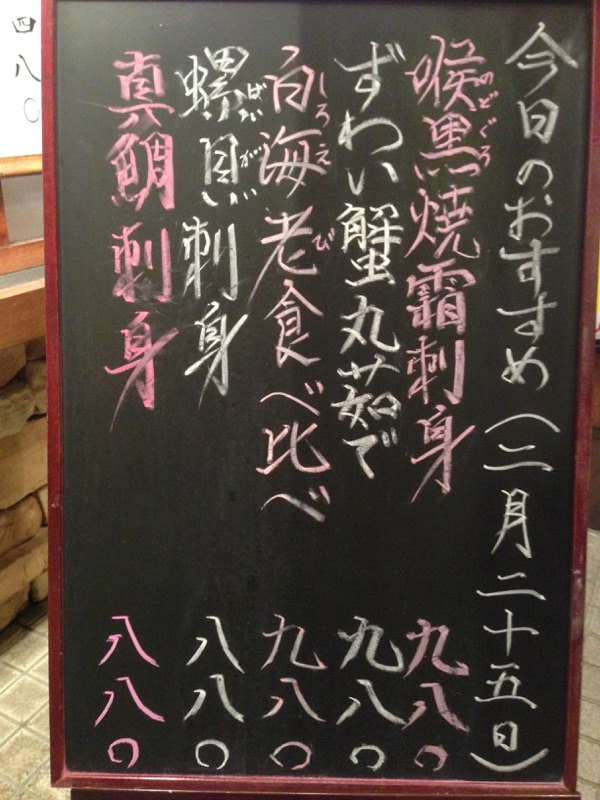 今日のおすすめ(二月二十五日)
喉黒焼霜刺身 九八〇
のどぐろ
ずわい蟹丸茹で 九八〇
白海老食べ比べ 九八〇
しろえび
螺貝刺身 八八〇
ばいがい
真鯛刺身 八八〇
四八〇